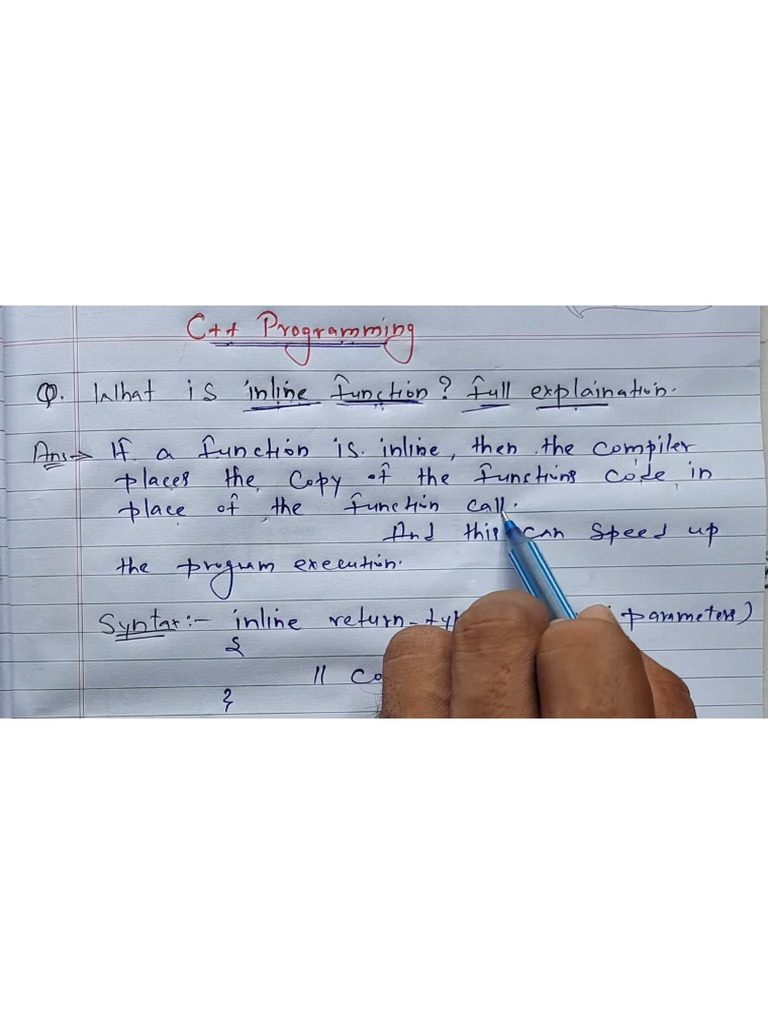 C++ Programming
Q. What is inline function? full explaination.
Ans:-> If a function is inline, then the compiler
places the copy of the functions code in
place of the function call.
And this can speed up
the program execution.
Syntax:- inline return-ty parameters)
{
//
}